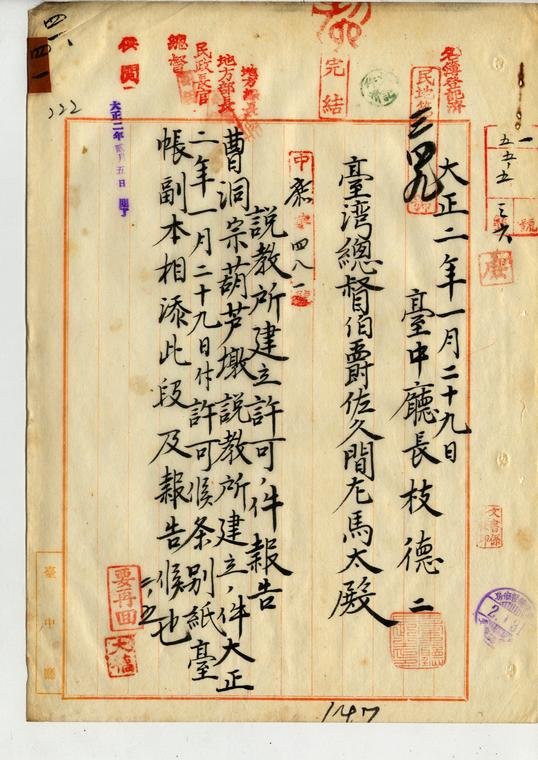 名簿登記済
大正二年一月二十九日
臺中廳長枝德二
臺灣總督伯爵佐久間左馬太殿
中庶第四八一號
說教所建立許可ノ件報告
曹洞宗葫芦墩說教所建立ノ件大正
二年一月二十九日付許可候条別紙臺
帳副本相添此段及報告候也
完結
地方部長
民政長官
總督
供閲
大正二年貳月五日
222
要再回
大稿
二、五
臺中廳
文書係
147